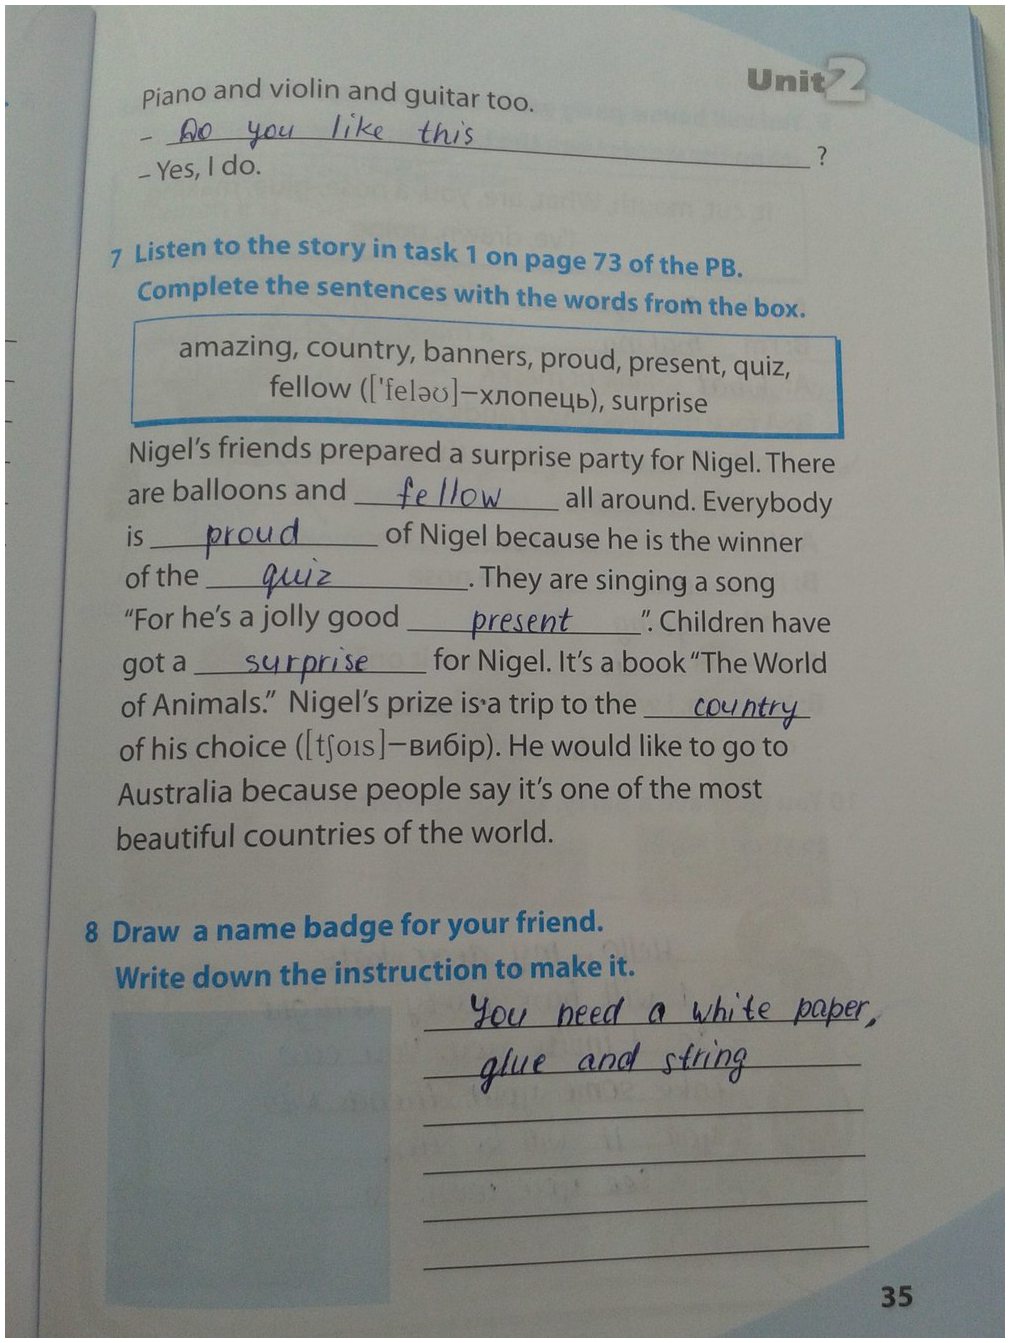 Unit 2
Piano and violin and guitar too.
– Do you like this ?
– Yes, I do.
7 Listen to the story in task 1 on page 73 of the PB.
Complete the sentences with the words from the box.
amazing, country, banners, proud, present, quiz,
fellow (['feləʊ]–хлопець), surprise
Nigel's friends prepared a surprise party for Nigel. There
are balloons and fellow all around. Everybody
is proud of Nigel because he is the winner
of the quiz. They are singing a song
"For he's a jolly good present". Children have
got a surprise for Nigel. It's a book "The World
of Animals." Nigel's prize is a trip to the country
of his choice ([tʃoɪs]–вибір). He would like to go to
Australia because people say it's one of the most
beautiful countries of the world.
8 Draw a name badge for your friend.
Write down the instruction to make it.
You need a white paper,
glue and string
35